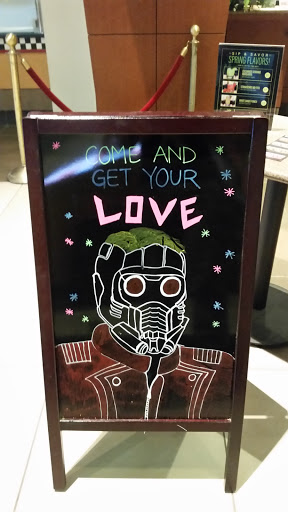 COME AND
GET YOUR
LOVE
SIP & SAVOR
SPRING FLAVORS!